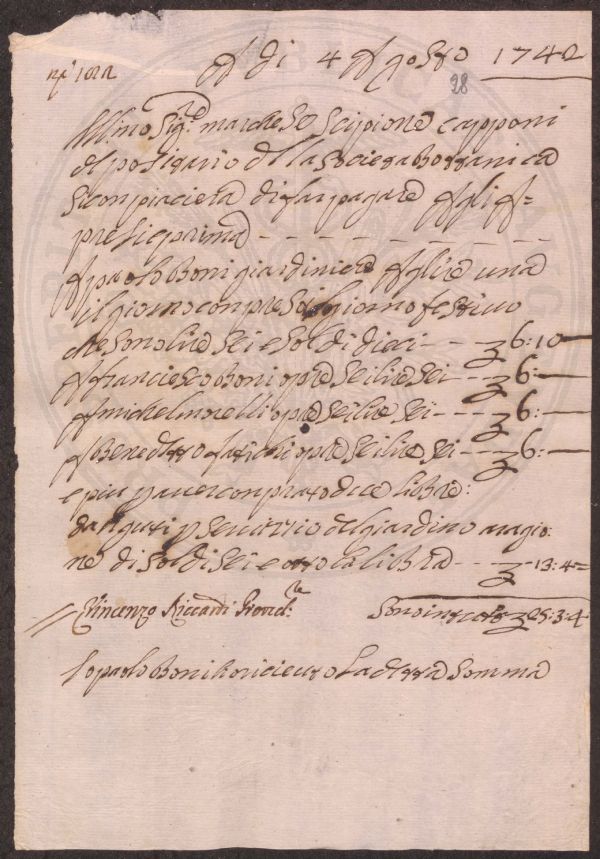 A di 4 Agosto 1742
28
Ill.mo Sig.re marchese Scipione Capponi
depositario della Società Bottanica
si conpiacierà di far pagare Agli A=
presi e prima - - - - - -
A paolo Boni giardiniere A lire una
il giorno conpreso il giorno festivo
che sono lire sei e soldi dieci - - - 6:10
A Franciesco Boni opre sei lire sei - - 6:
A micheli opre sei lire sei - - - 6:
A Benedetto opre sei lire sei - - 6:
e piu p aver conprato libre:
p servizio del giardino a ragio
ne di soldi sei e otto la libra - - - 13:4
Vincenzo Riccardi Proved.re Sono in tutto 25:3:4
Io paolo Boni ho ricieuto La detta Somma